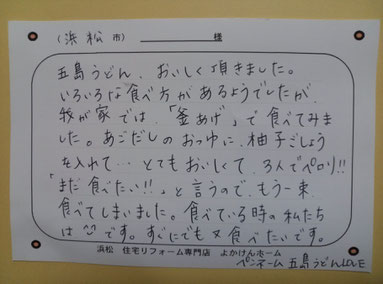 (浜松市) 様
五島うどん、おいしく頂きました。
いろいろな食べ方があるようでしたが、
我が家では、「釜あげ」で食べてみま
した。あごだしのおつゆに、柚子ごしょう
を入れて… とてもおいしくて、3人でペロリ!!
「まだ食べたい!!」と言うので、もう一束、
食べてしまいました。食べている時の私たち
は です。すぐにでも又食べたいです。
浜松 住宅リフォーム専門店 よかけんホーム
ペンネーム 五島うどんLOVE